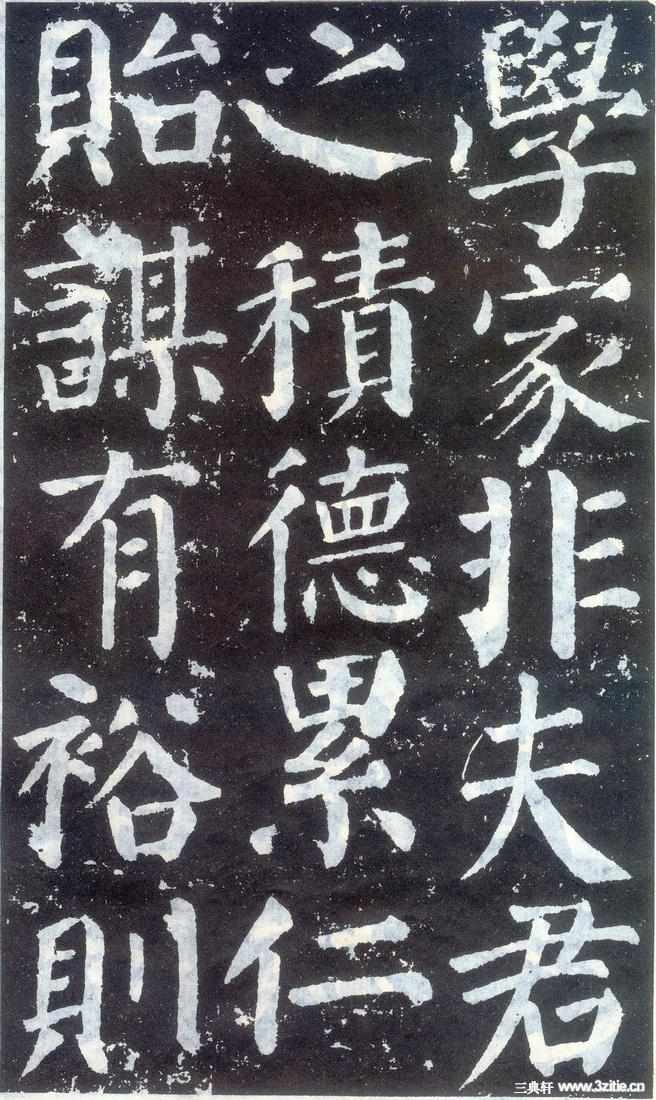 學家非夫君
之積德累仁
貽謀有裕則
三典轩 www.3zitie.cn